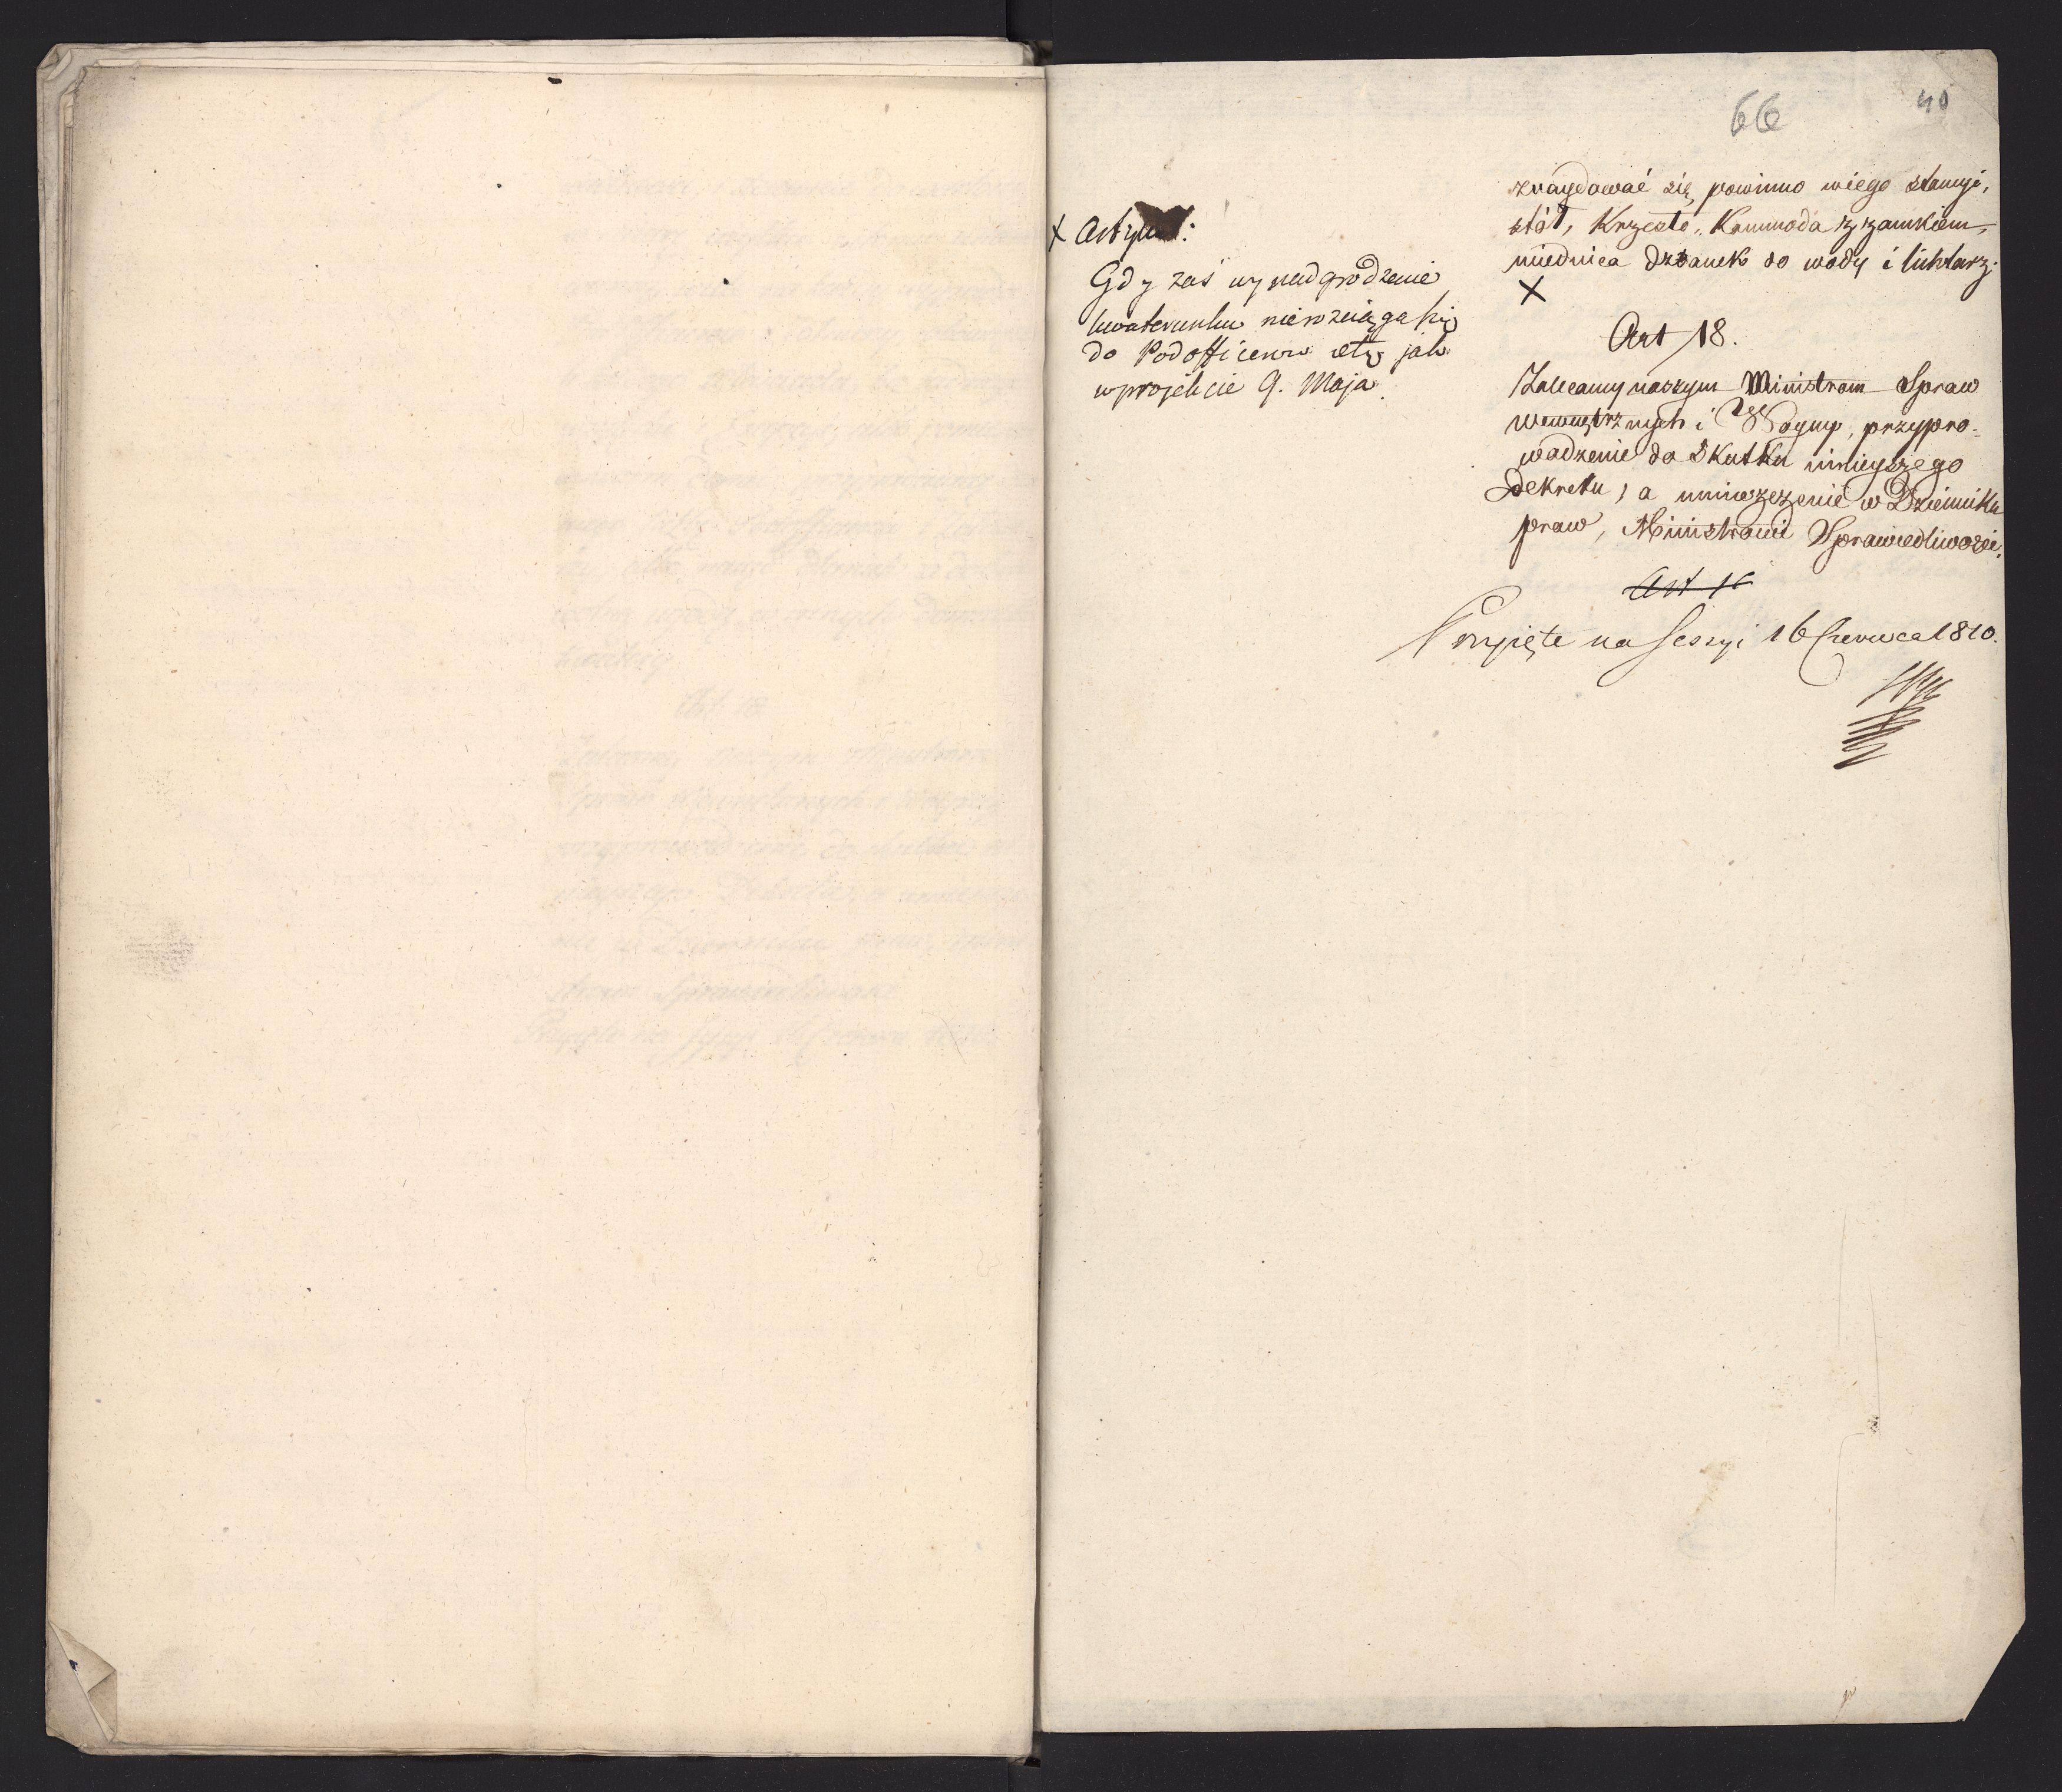 66
40
znaydować się powinno wiego stancyi,
stół, Krzesto, Kommoda z zamkiem,
miednica dzbanek do wody i lichtarz.
X
X Artykuł:
Gdy zaś wynadgrodzenie
kwaterunku nierozciąga się
do Podofficerów etc; jak
w projekcie 9. Maja.
Art 18.
Zalecamy naszym Ministrom Spraw
Wewnętrznych i Woyny, przypro-
wadzenie do Skutku ninieyszego
Dekretu, a umieszczenie w Dzienniku
praw, Ministrowi Sprawiedliwości.
Art
Przyięte na Sessyi 16 Czerwca 1810.